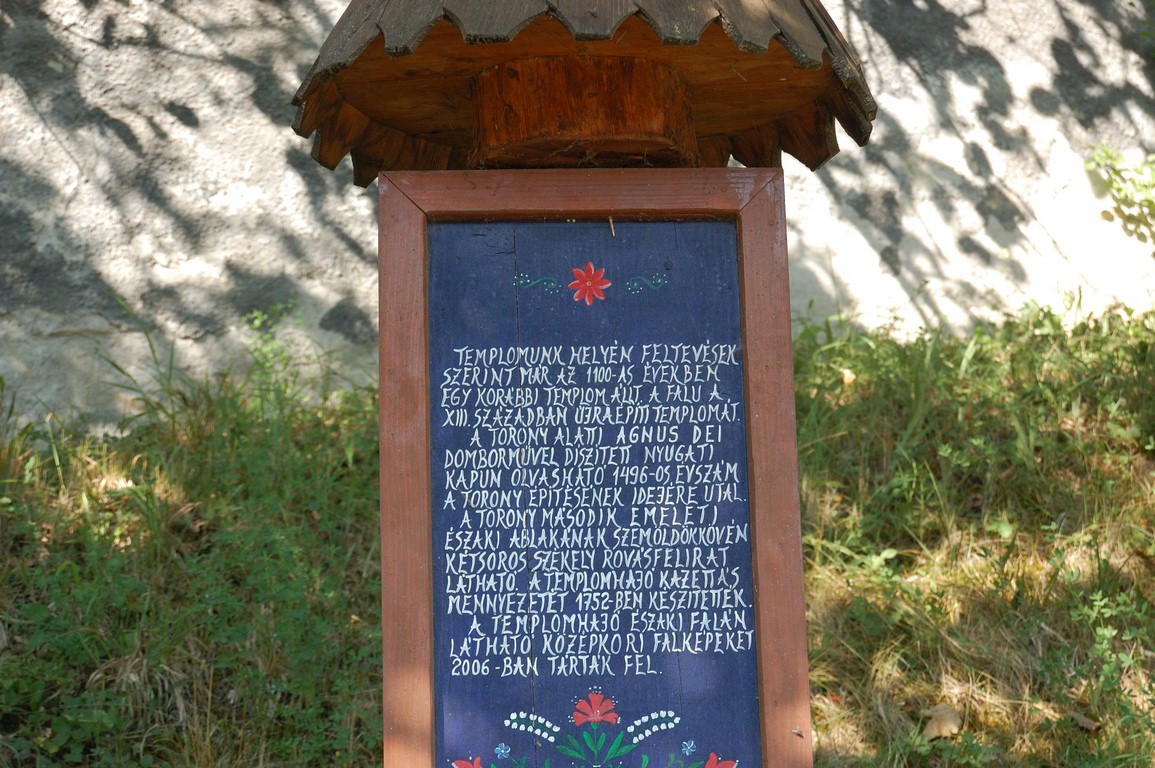 TEMPLOMUNK HELYÉN FELTEVÉSEK
SZERINT MÁR AZ 1100-AS ÉVEKBEN
EGY KORÁBBI TEMPLOM ÁLLT. A FALU A
XIII. SZÁZADBAN ÚJRAÉPÍTI TEMPLOMÁT.
A TORONY ALATTI AGNUS DEI
DOMBORMŰVEL DÍSZÍTETT NYUGATI
KAPUN OLVASHATÓ 1496-OS ÉVSZÁM
A TORONY ÉPÍTÉSÉNEK IDEJÉRE UTAL.
A TORONY MÁSODIK EMELETI
ÉSZAKI ABLAKÁNAK SZEMÖLDÖKKÖVÉN
KÉTSOROS SZÉKELY ROVÁSFELIRAT
LÁTHATÓ. A TEMPLOMHAJÓ KAZETTÁS
MENNYEZETÉT 1752-BEN KÉSZÍTETTÉK.
A TEMPLOMHAJÓ ÉSZAKI FALÁN
LÁTHATÓ KÖZÉPKORI FALKÉPEKET
2006-BAN TÁRTÁK FEL.